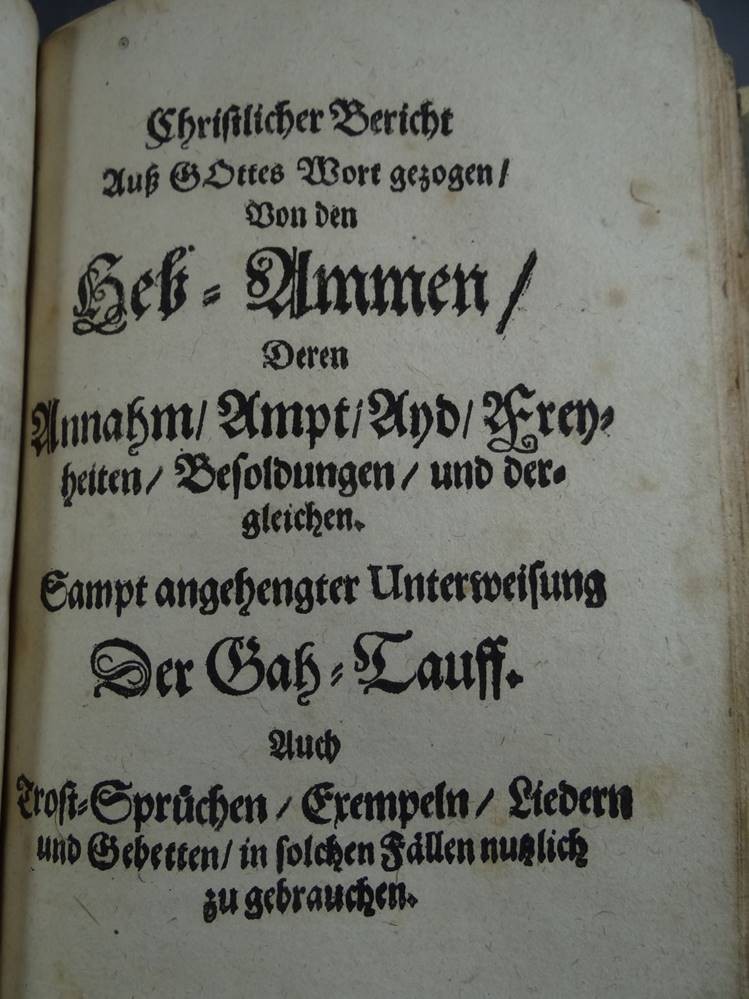 Christlicher Bericht
Auß GOttes Wort gezogen/
Von den
Heb-Ammen/
Deren
Annahm/ Ampt/ Ayd/ Frey-
heiten/ Besoldungen/ und der-
gleichen.
Sampt angehengter Unterweisung
Der Gah-Tauff.
Auch
Trost-Sprüchen/ Exempeln/ Liedern
und Gebetten/ in solchen Fällen nutzlich
zu gebrauchen.